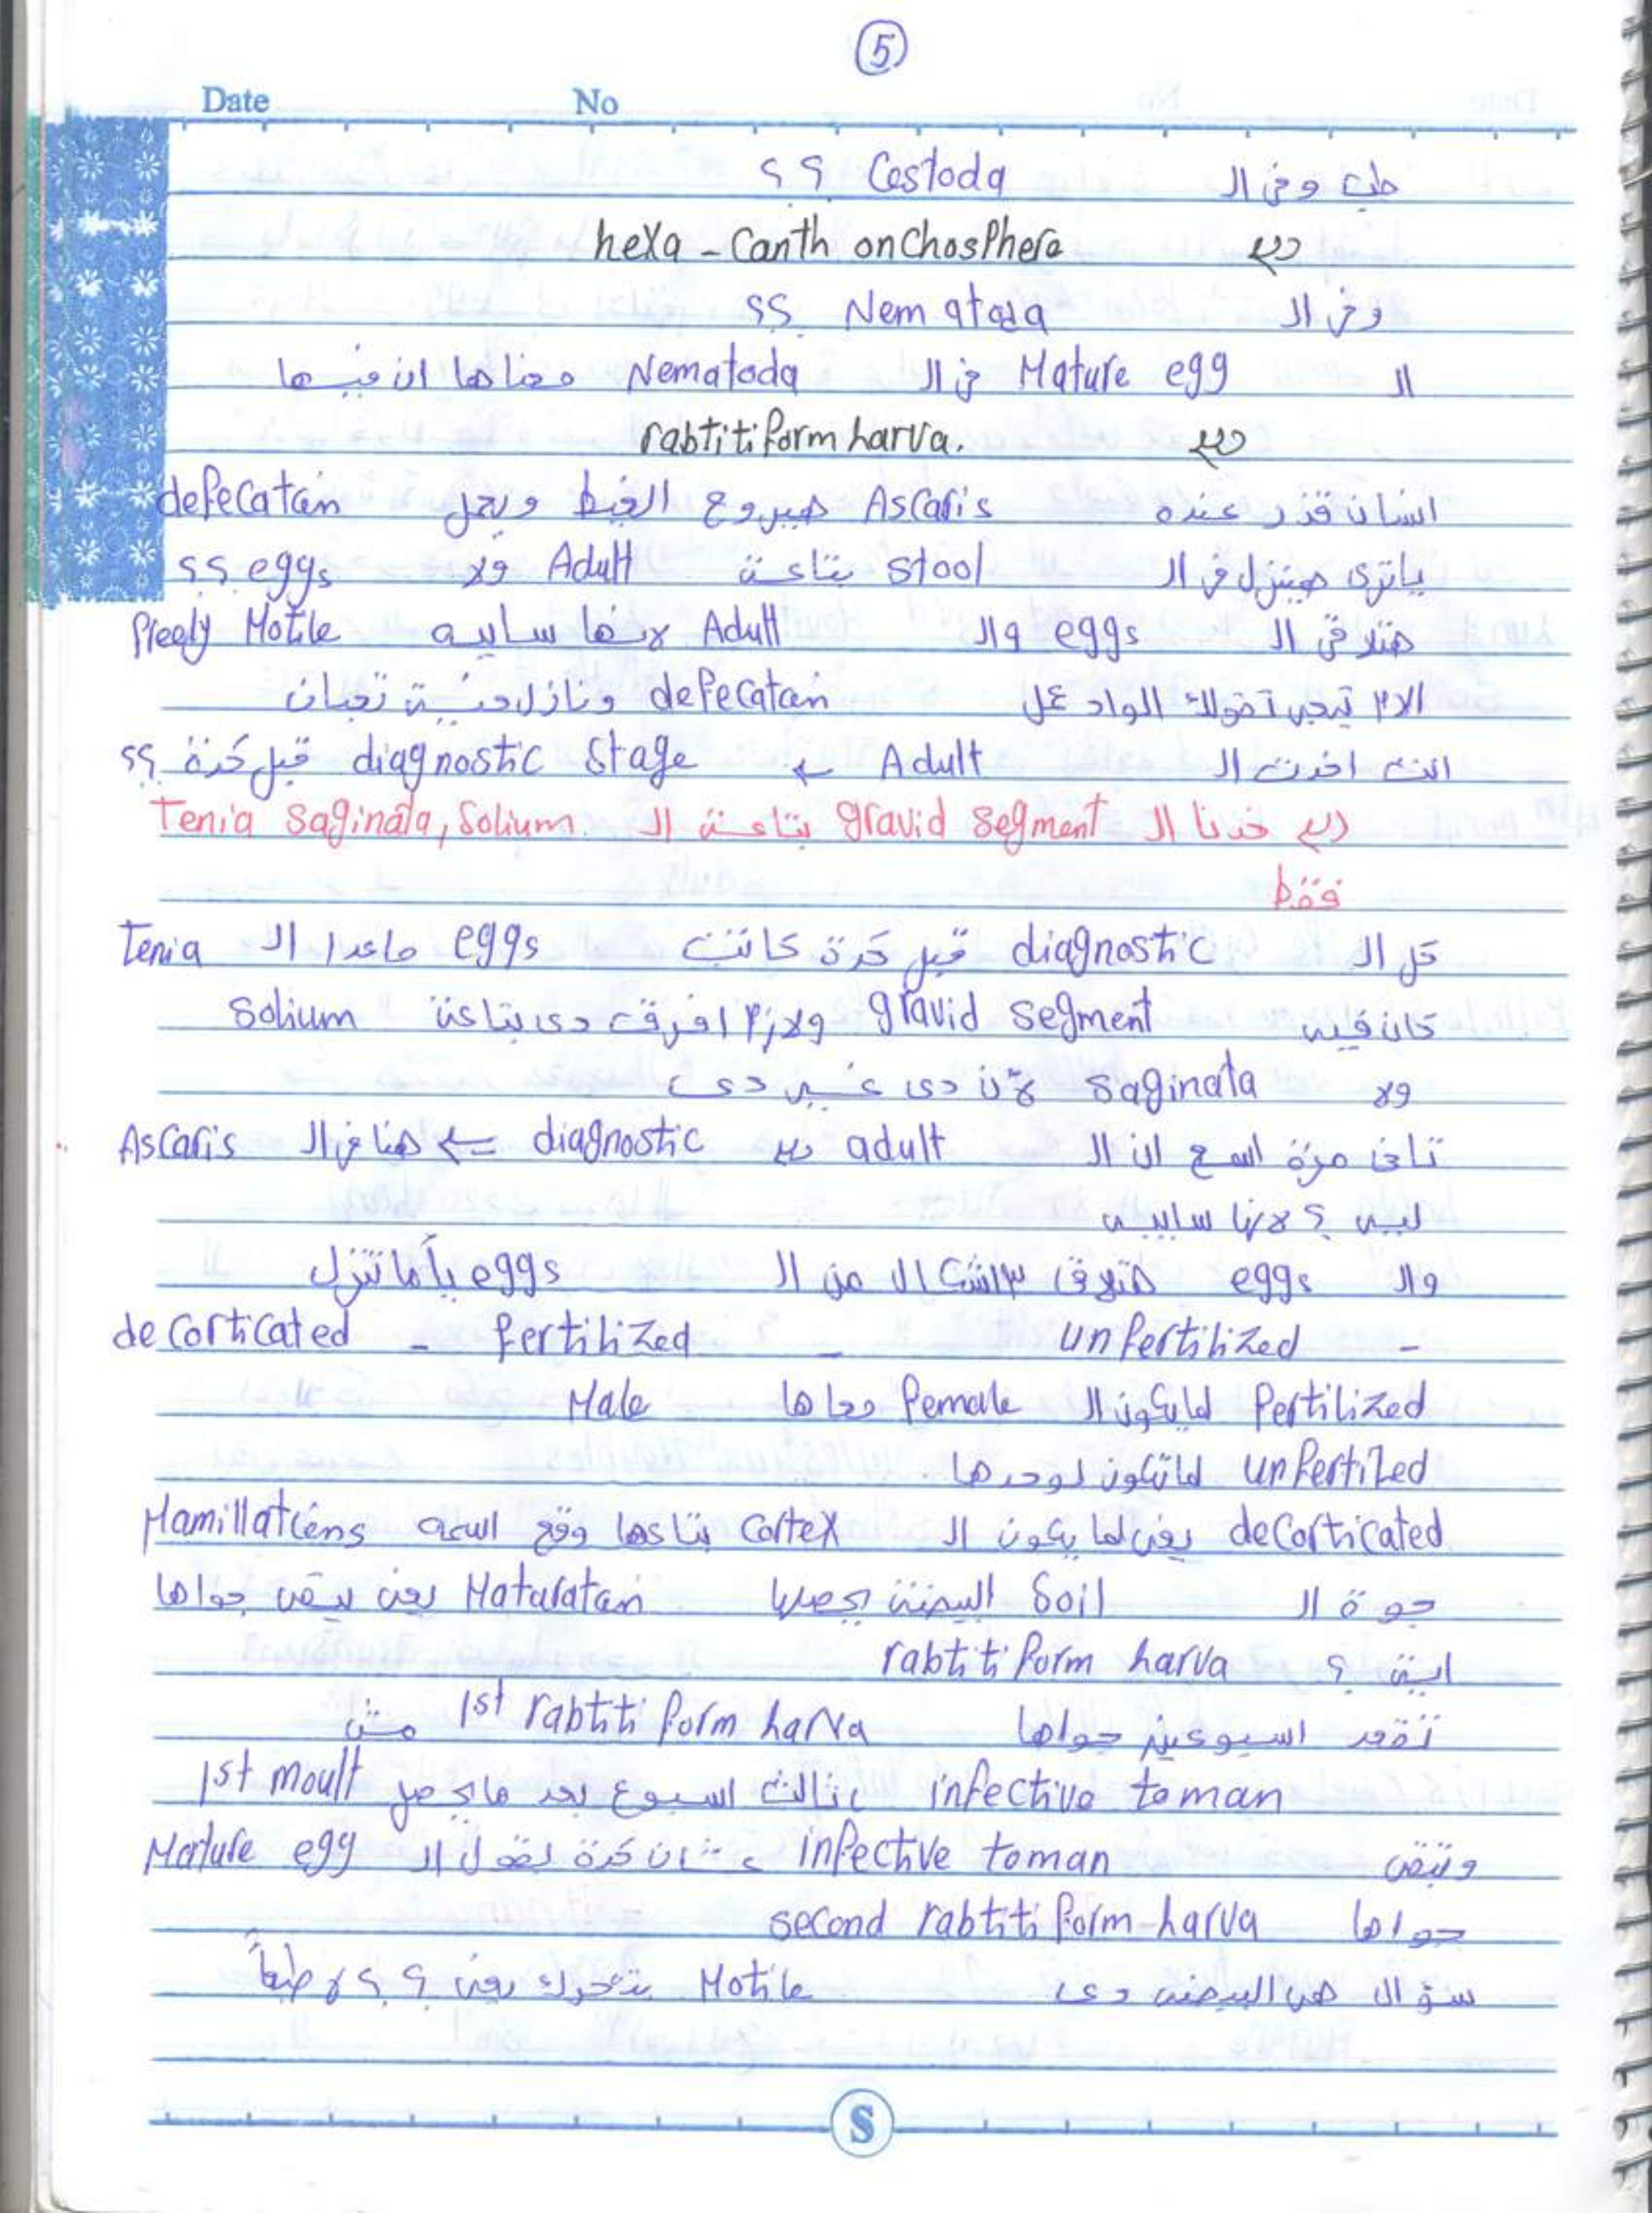 5
Date No
طب وفى ال Cestoda ؟؟
hexa - Canth onchosphere
وفى ال Nematoda ؟؟
ال Mature egg فى ال Nematoda معناها ان فيها
rabtitiform larva.
انسان قذر عنده Ascaris هيروح الغيط ويعمل defecation
ياترى هينزل فى ال stool بتاعته Adult ولا eggs ؟؟
هتلاقى ال eggs وال Adult لانها سايبه freely Motile
الام تيجى تقولك الواد عمل defecation ونازل منه تعبان
انت اخدت ال Adult ← diagnostic stage قبل كدة ؟؟
خدنا ال gravid segment بتاعت ال Tenia Saginata, Solium
فقط
كل ال diagnostic قبل كدة كانت eggs ماعدا ال Tenia
كان فيه gravid segment ولازم افرق دى بتاعة Solium
ولا Saginata لأن دى غير دى
تانى مرة اسمع ان ال adult diagnostic ← هنا فى ال Ascaris
ليه ؟ لانها سايبه
وال eggs هتلاقى ٣ اشكال من ال eggs يأما تنزل
- unfertilized - fertilized - decorticated
fertilized لما يكون ال female معاها Male
unfertilzed لما تكون لوحدها .
decorticated يعنى لما يكون ال Cortex بتاعها وقع اسمه Mamillations
جوة ال Soil البيضة يحصلها Maturation يعنى يبقى جواها
ايه ؟ rabtitiform larva
تقعد اسبوعين جواها 1st rabtitiform larva مش
infective to man تالت اسبوع بعد ما يحصل 1st moult
وتبقى infective to man عشان كدة بقول ال Mature egg
جواها second rabtitiform larva
سؤال هى البيضة دى Motile بتتحرك يعنى ؟ ؟ لا طبعاً
S